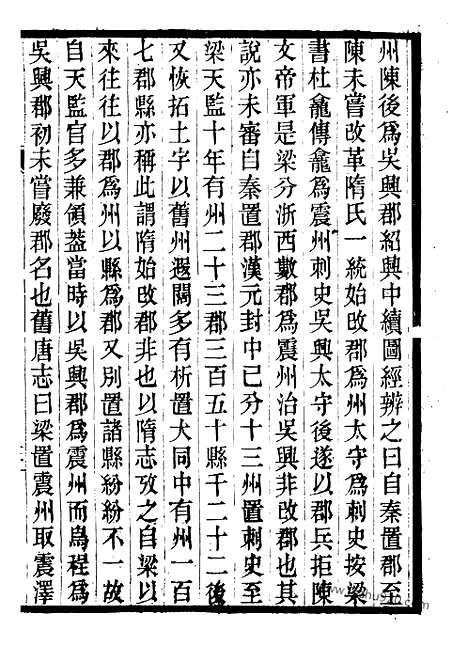 州陳後爲吳興郡紹興中續圖經辨之曰自秦置郡至
陳未嘗改革隋氏一統始改郡爲州太守爲刺史按梁
書杜龕傳龕爲震州刺史吳興太守後遂以郡兵拒陳
文帝軍是梁分浙西數郡爲震州治吳興非改郡也其
說亦未審自秦置郡漢元封中已分十三州置刺史至
梁天監十年有州二十三郡三百五十縣千二十二後
又恢拓土宇以舊州遐闊多有析置大同中有州一百
七郡縣亦稱此謂隋始改郡非也以隋志攷之自梁以
來往往以郡爲州以縣爲郡又別置諸縣紛紛不一故
自天監官多兼領蓋當時以吳興郡爲震州而烏程爲
吳興郡初未嘗廢郡名也舊唐志曰梁置震州取震澤